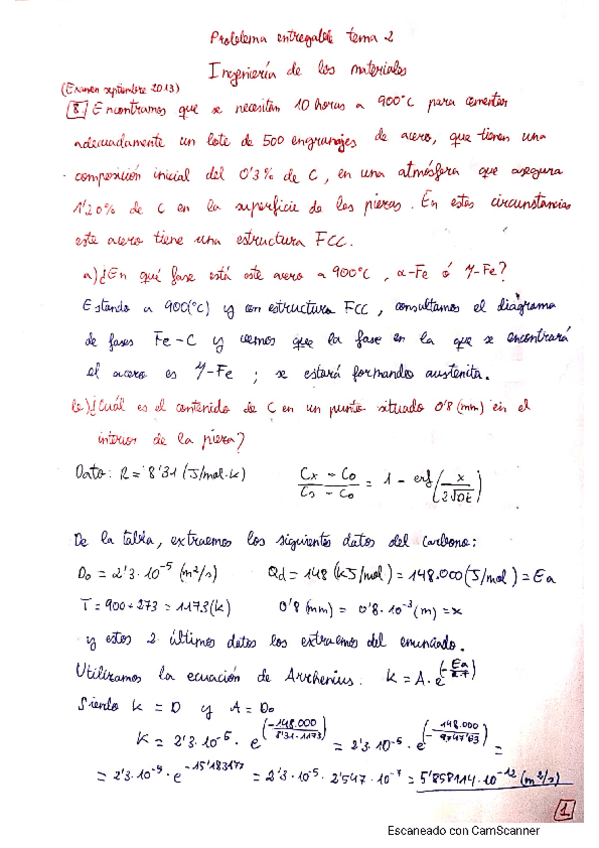 Problema entregable tema 2
Ingeniería de los materiales
(Examen septiembre 2013)
8. Encontramos que se necesitan 10 horas a 900°C para cementar
adecuadamente un lote de 500 engranajes de acero, que tienen una
composición inicial del 0'3% de C, en una atmósfera que asegura
1'20% de C en la superficie de las piezas. En estas circunstancias
este acero tiene una estructura FCC.
a) ¿En qué fase está este acero a 900°C, α-Fe ó γ-Fe?
Estando a 900(°C) y con estructura FCC, consultamos el diagrama
de fases Fe-C y vemos que la fase en la que se encontrará
el acero es γ-Fe; se estará formando austenita.
b) ¿Cuál es el contenido de C en un punto situado 0'8 (mm) en el
interior de la pieza?
Dato: R = 8'31 (J/mol·K) (Cx - Co)/(Cs - Co) = 1 - erf(x/(2√Dt))
De la tabla, extraemos los siguientes datos del carbono:
Do = 2'3·10^-5 (m²/s) Qd = 148 (kJ/mol) = 148.000 (J/mol) = Ea
T = 900 + 273 = 1173 (K) 0'8 (mm) = 0'8·10^-3 (m) = x
y estos 2 últimos datos los extraemos del enunciado.
Utilizamos la ecuación de Arrhenius. K = A·e^(-Ea/R·T)
Siendo K = D y A = Do
K = 2'3·10^-5 · e^(-148.000/8'31·1173) = 2'3·10^-5 · e^(-148.000/9.747'63) =
= 2'3·10^-5 · e^-15'183177 = 2'3·10^-5 · 2'547·10^-7 = 5'858114·10^-12 (m²/s)
1
Escaneado con CamScanner